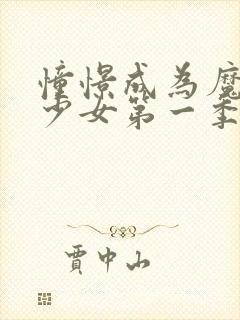 憧憬成為魔
少女第一季
賈中山